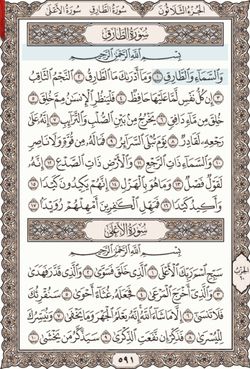 الجزء الثلاثون سورة الطارق سورة الأعلى
سورة الطارق
بسم الله الرحمن الرحيم
والسماء والطارق ١ وما أدراك ما الطارق ٢ النجم الثاقب
٣ إن كل نفس لما عليها حافظ ٤ فلينظر الإنسان مم خلق ٥
خلق من ماء دافق ٦ يخرج من بين الصلب والترائب ٧ إنه على
رجعه لقادر ٨ يوم تبلى السرائر ٩ فما له من قوة ولا ناصر
١٠ والسماء ذات الرجع ١١ والأرض ذات الصدع ١٢ إنه
لقول فصل ١٣ وما هو بالهزل ١٤ إنهم يكيدون كيدا ١٥
وأكيد كيدا ١٦ فمهل الكافرين أمهلهم رويدا ١٧
سورة الأعلى
بسم الله الرحمن الرحيم
سبح اسم ربك الأعلى ١ الذي خلق فسوى ٢ والذي قدر فهدى
٣ والذي أخرج المرعى ٤ فجعله غثاء أحوى ٥ سنقرئك
فلا تنسى ٦ إلا ما شاء الله إنه يعلم الجهر وما يخفى ٧ ونيسرك
لليسرى ٨ فذكر إن نفعت الذكرى ٩ سيذكر من يخشى ١٠
٥٩١